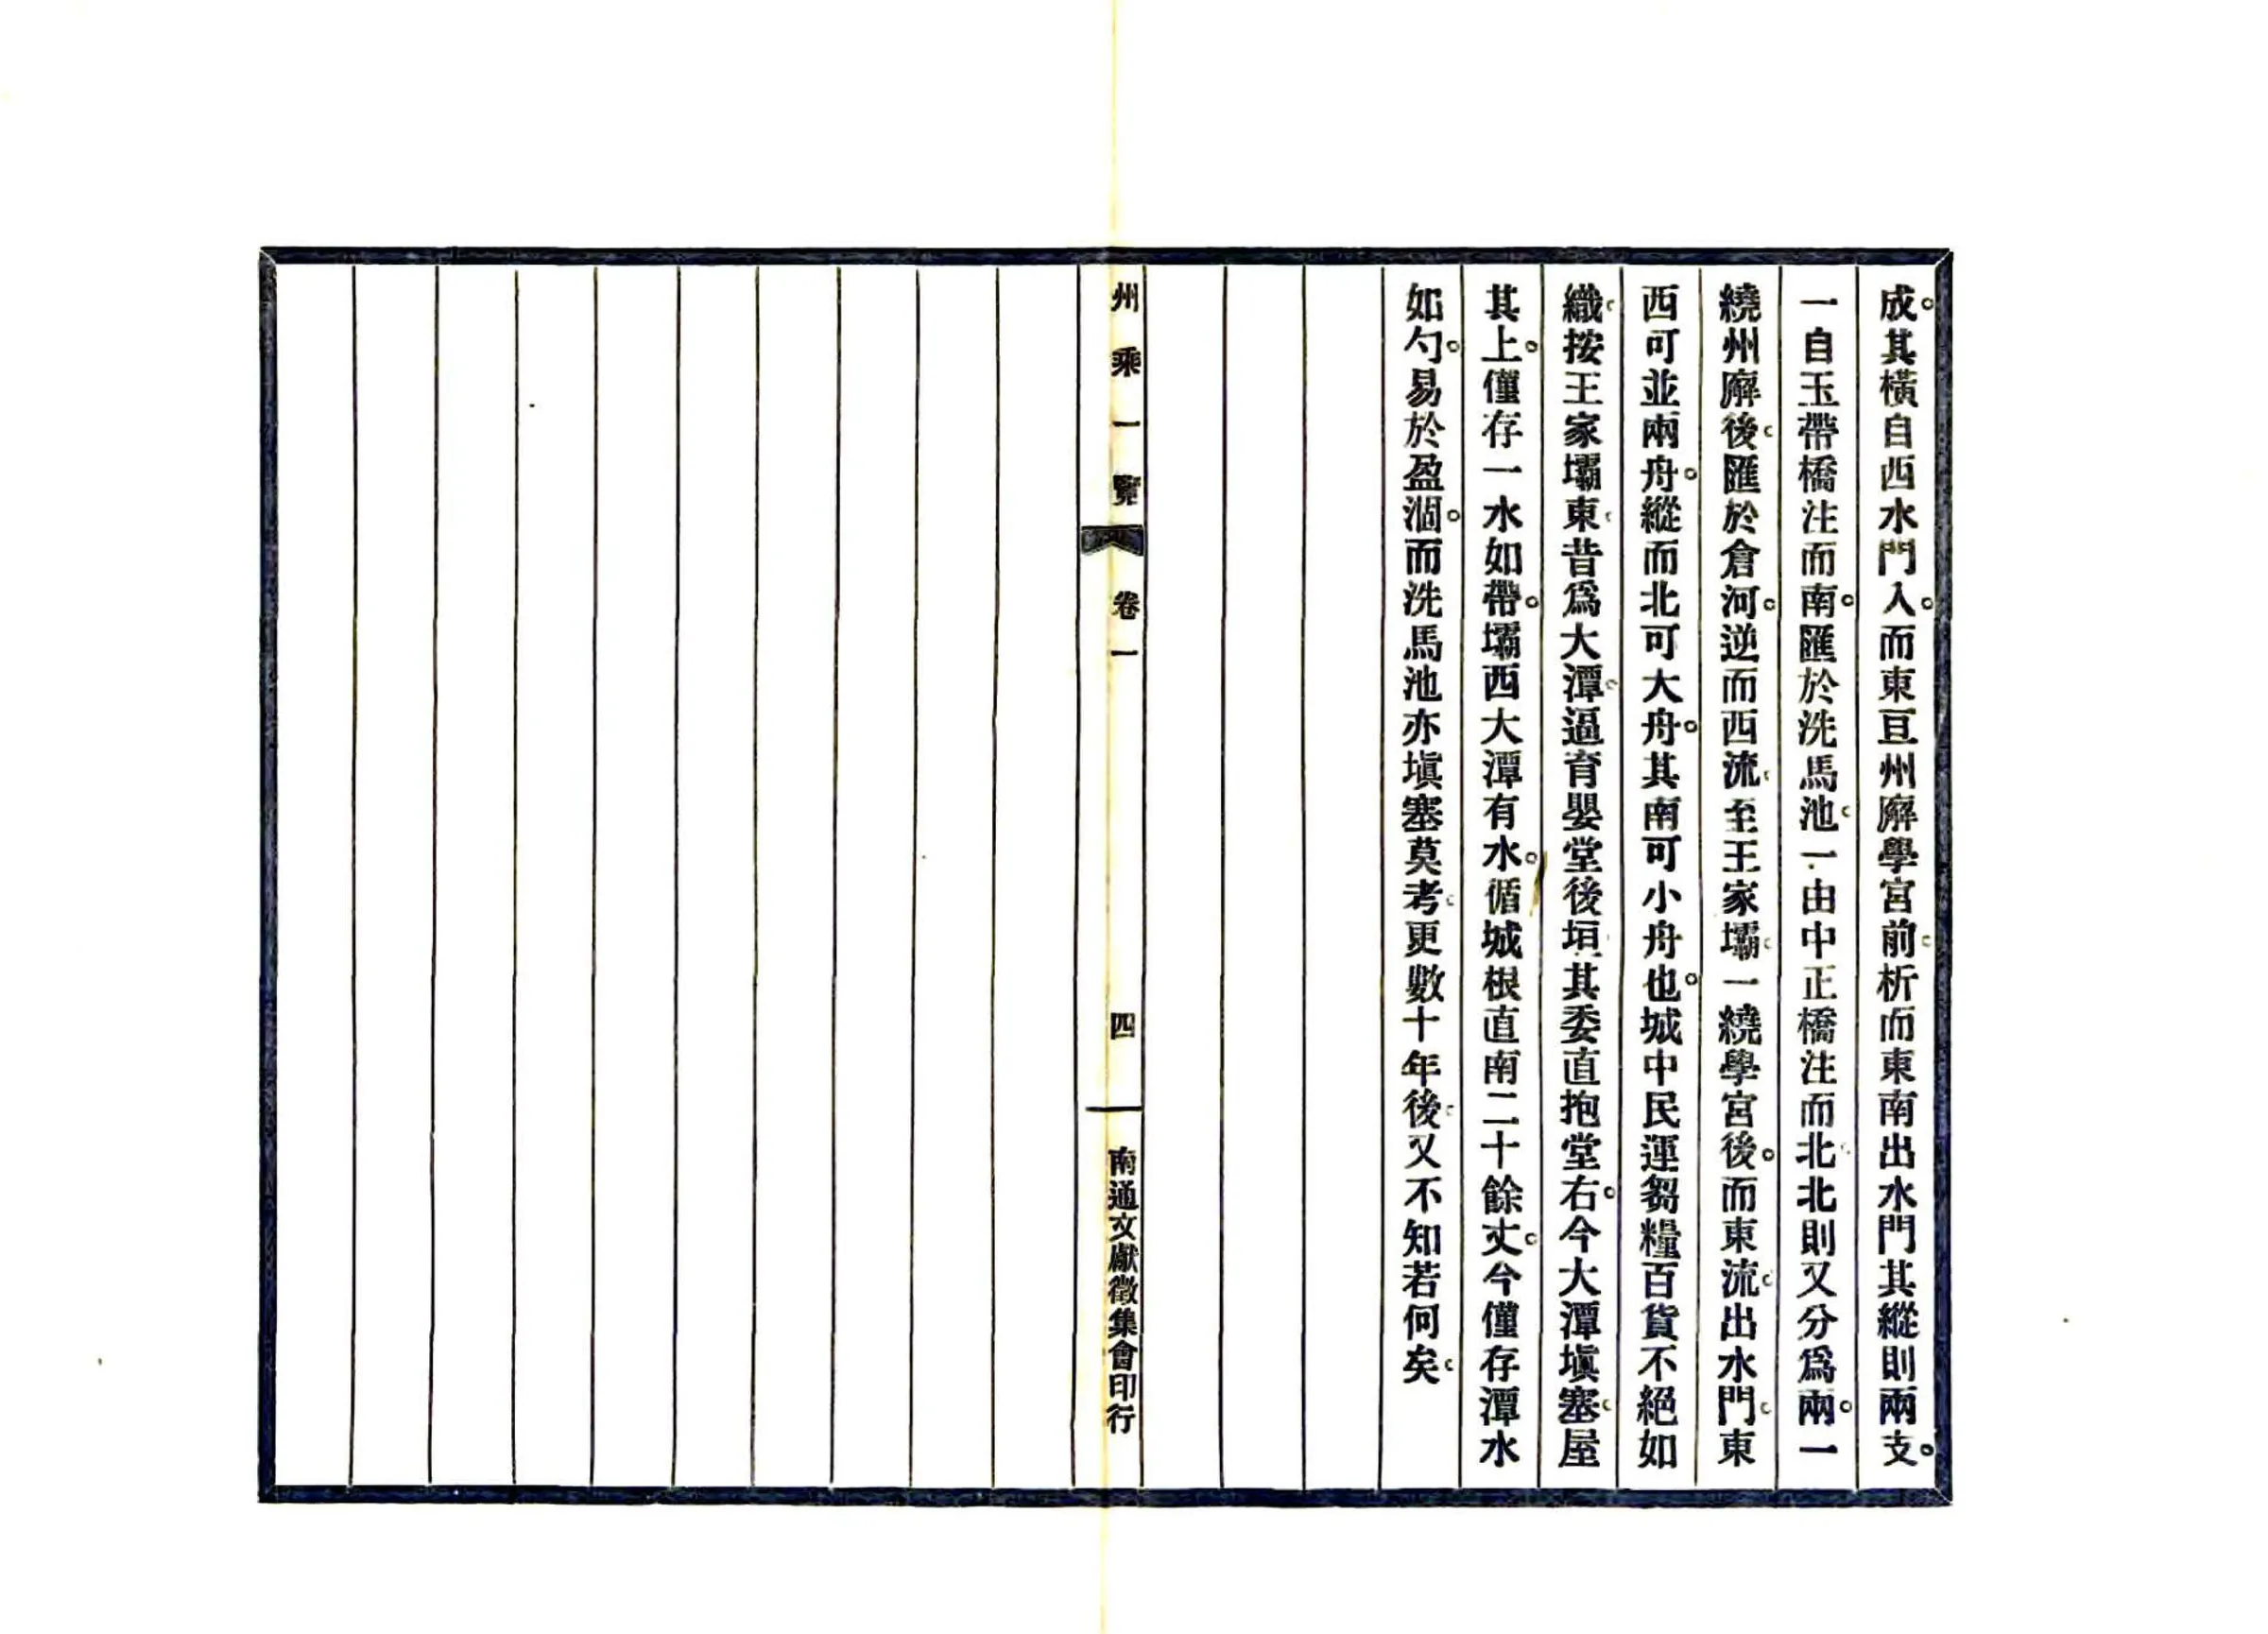 成。其橫自西水門入。而東亘州廨學宮前。析而東南出水門其縱則兩支。
一自玉帶橋注而南。匯於洗馬池。一由中正橋注而北。北則又分爲兩。一
繞州廨後。匯於倉河。逆而西流。至王家壩。一繞學宮後。而東流。出水門。東
西可並兩舟。縱而北可大舟。其南可小舟也。城中民運芻糧百貨不絕如
織。按王家壩東。昔爲大潭。逼育嬰堂後垣。其委直抱堂右。今大潭塡塞。屋
其上。僅存一水如帶。壩西大潭有水。循城根直南二十餘丈。今僅存潭水
如勺。易於盈涸。而洗馬池亦塡塞莫考。更數十年後。又不知若何矣。
州乘一覽 卷一 四 南通文獻徵集會印行